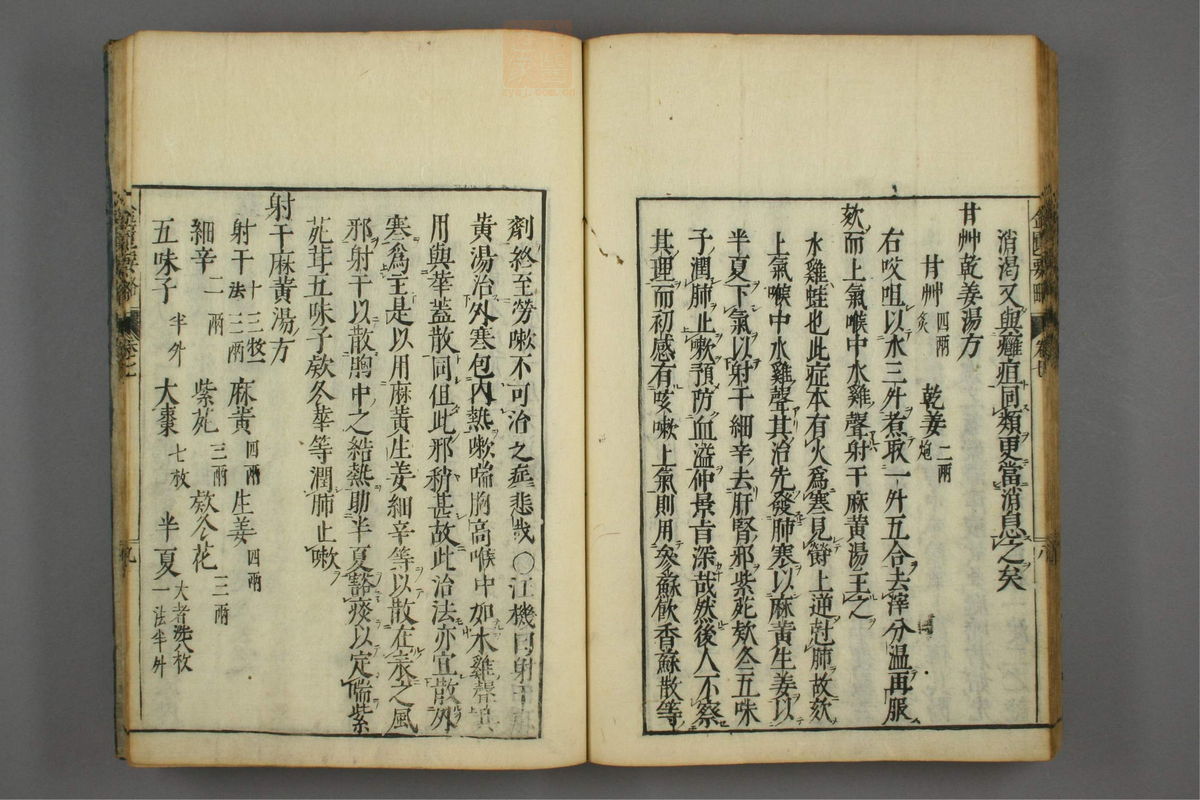 消渴又與癰疽同類更當消息之矣
甘艸乾姜湯方
甘艸四兩炙 乾姜二兩炮
右㕮咀以水三升煮取一升五合去滓分温再服
欬而上氣喉中水雞聲射干麻黄湯主之
水雞蛙也此症本有火爲寒見欝上逆尅肺故欬
上氣喉中水雞聲其治先發肺寒以麻黄生姜以
半夏下氣以射干細辛去肝腎邪紫苑欵冬五味
子潤肺止嗽預防血溢仲景旨深哉然後人不察
其理而初感有咳嗽上氣則用參蘇飲香蘇散等
劑終至勞嗽不可治之症悲哉〇江機曰射干麻
黄湯治外寒包内熱嗽喘胸高喉中如水雞聲眞
用與華蓋散同但此邪稍甚故此治法亦宜散外
寒爲主是以用麻黄生姜細辛等以散在表之風
邪射干以散胸中之結熱助半夏豁痰以定喘紫
苑茸五味子欵冬華等潤肺止嗽
射干麻黄湯方
射干十三枚一法三兩 麻黄四兩 生姜四兩
細辛二兩 紫苑三兩 欵冬花三兩
五味子半升 大棗七枚 半夏大者洗八枚一法半升
金匱要略 卷
九